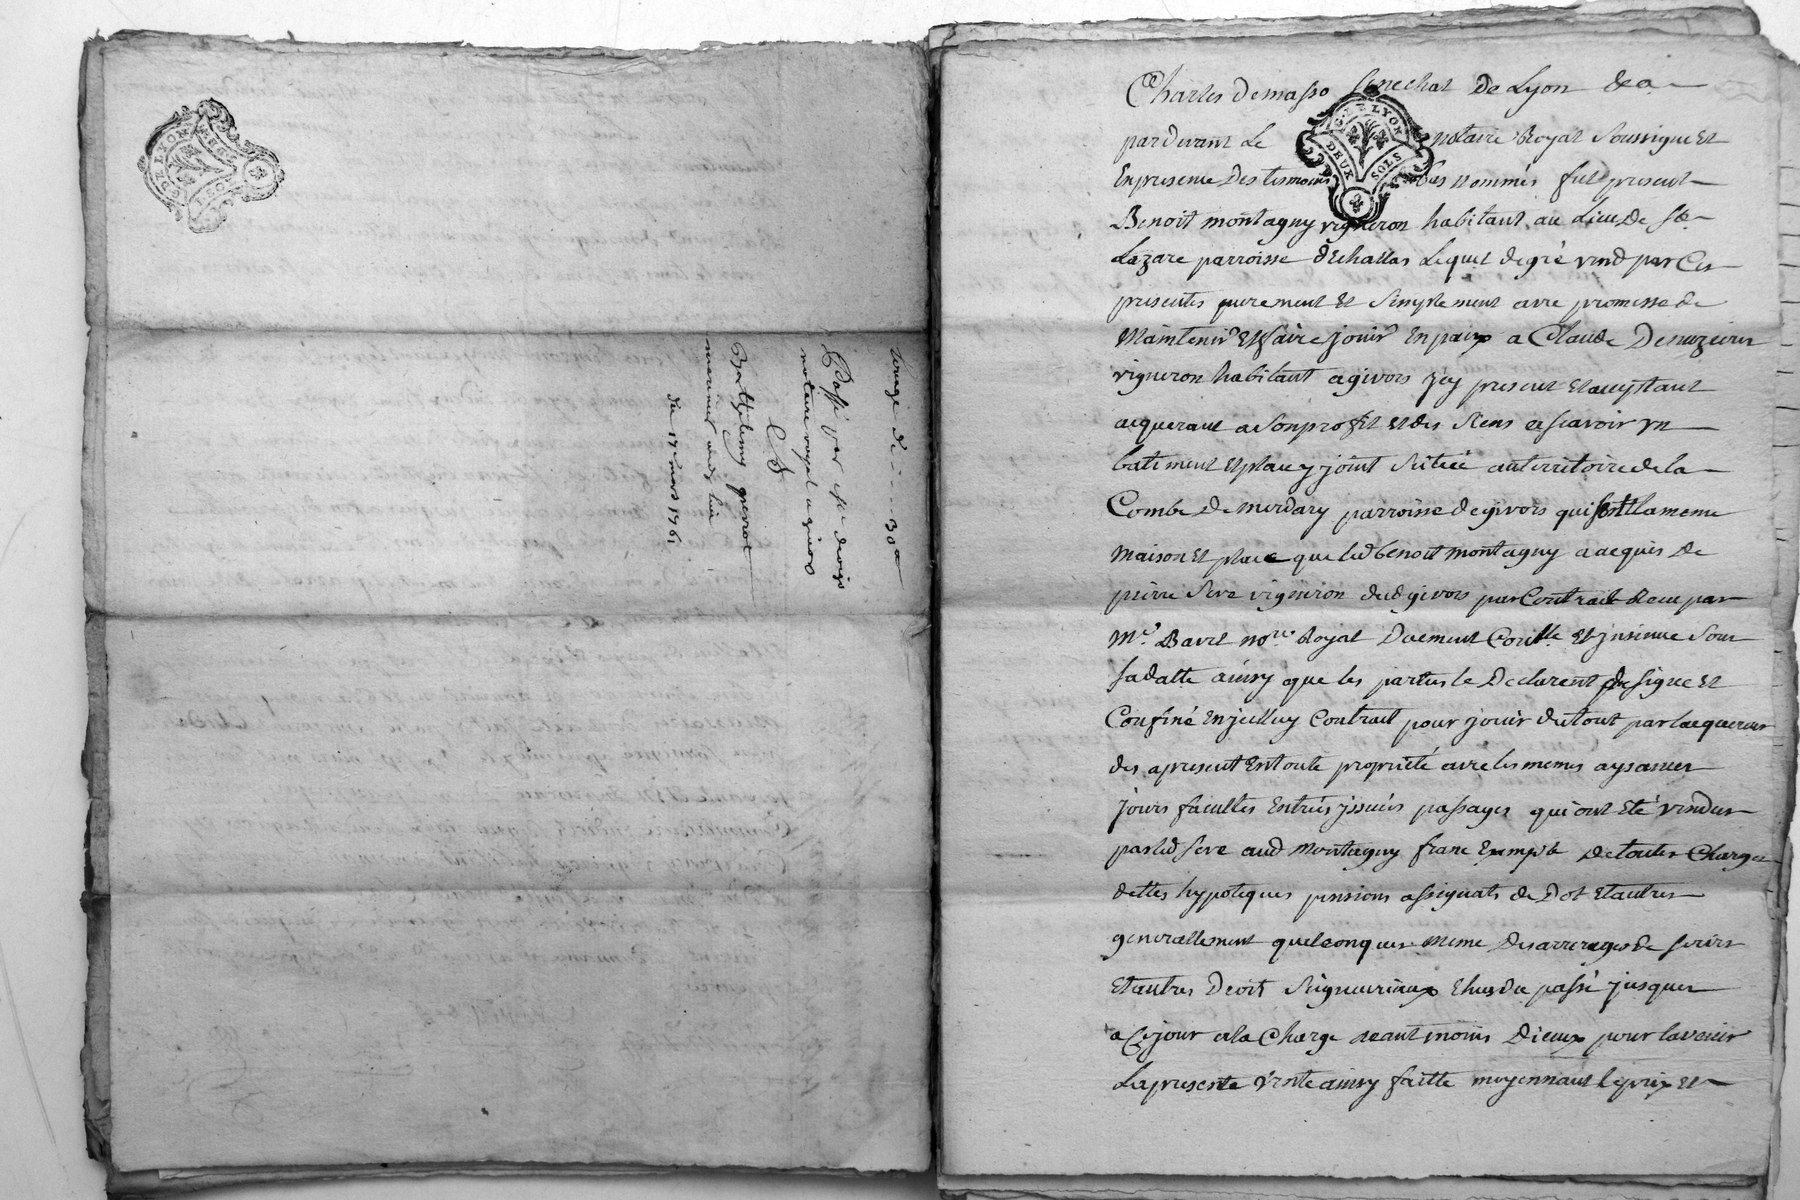 G. DE LYON
DEUX SOLS
du 17e mars 1761
marinier aud lieu
Barthelemy
notaire royal a givors
Passé par
30
Charles Demasso Senechal De Lyon
G. DE LYON
DEUX SOLS
pardevant Le notaire Royal Soussigne Et
En presence Des temoins bas nommés fut present
Benoit montagny vigneron habitant au Lieu De St
Lazare parroisse d'Echallas Lequel de gré vend par Ces
presentes purement Et Simplement avec promesse de
Maintenir Et faire Jouir En paix a Claude Denuzieres
vigneron habitant a givors jcy present Et acceptant
acquerant a Son profit Et des Siens a scavoir yn
batiment Et place y joint Scitué au territoire de la
Combe De mordary parroisse de givors qui sont la meme
Maison Et place que led benoit montagny a acquis De
pierre Seve vigneron dud givors par Contrait Recu par
Me. Bavet nore. Royal Duement Conllé. Et jnsinue Sous
sa datte ainsy que les parties le Declarent designe Et
Confiné En jcelluy Contrait pour jouir du tout par lacquereur
des a present En toute proprieté avec les memes aysances
jours facultes Entrées jssuées passages qui ont Eté vendus
par led Seve aud Montagny franc Exempte de toutes Charges
dettes hypoteques pensions assignats de Dot Et autres
generallement quelconques meme Des arrerages de servis
Et autres Droit Seigneuriaux Echus du passé jusques
a Ce jour a la Charge neantmoins D'ieux pour lavenir
La presente Vente ainsy faitte moyennant Le prix Et